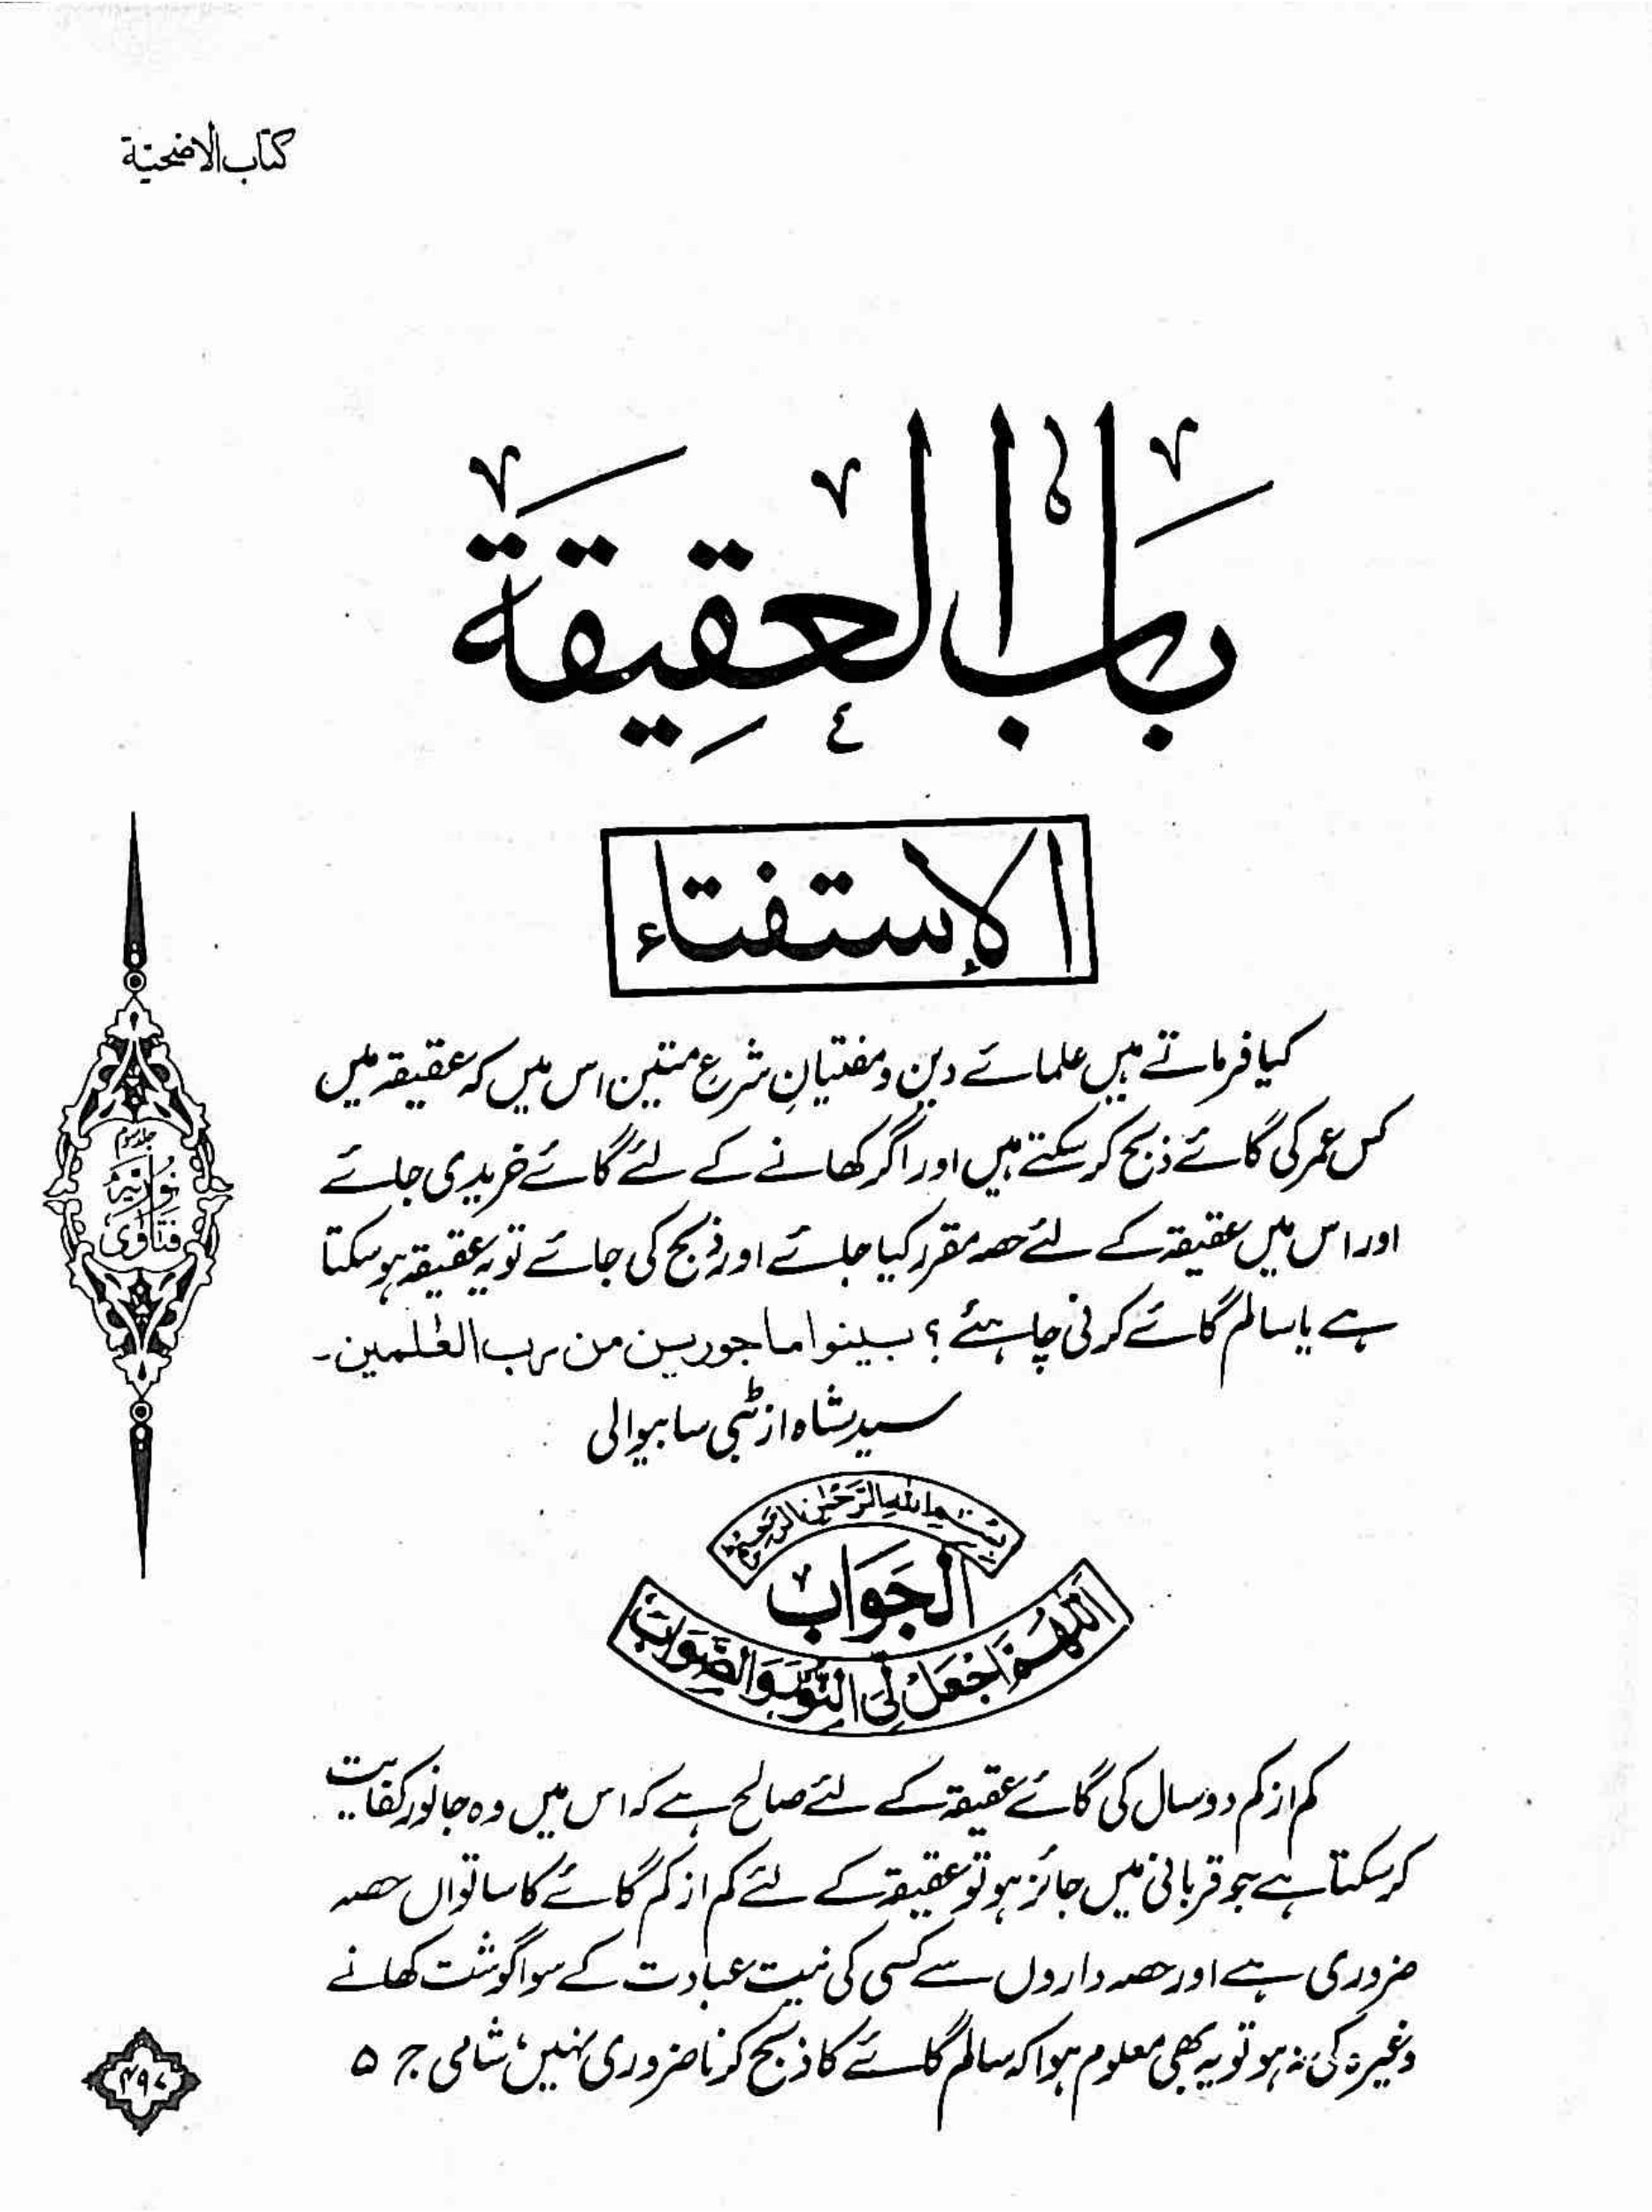 کتاب الاضحیۃ
بَابُ الْعَقِیْقَةِ
الإستفتاء
کیا فرماتے ہیں علمائے دین و مفتیانِ شرع متین اس میں کہ عقیقہ میں
کس عمر کی گائے ذبح کر سکتے ہیں اور اگر کھانے کے لئے گائے خریدی جائے
اور اس میں عقیقہ کے لئے حصہ مقرر کیا جائے اور ذبح کی جائے تو یہ عقیقہ ہو سکتا
ہے یا سالم گائے کرنی چاہئے؟ بینوا ماجورین من رب العٰلمین۔
سید شاہ از ٹبی ساہیوالی
بِسْمِ اللهِ الرَّحْمٰنِ الرَّحِیْمِ
الجَوَابُ
اَللّٰهُمَّ اجْعَلْ لِیَ النُّوْرَ وَالصَّوَابَ
کم از کم دو سال کی گائے عقیقہ کے لئے صالح ہے کہ اس میں وہ جانور کفایت
کر سکتا ہے جو قربانی میں جائز ہو تو عقیقہ کے لئے کم از کم گائے کا ساتواں حصہ
ضروری ہے اور حصہ داروں سے کسی کی نیت عبادت کے سوا گوشت کھانے
وغیرہ کی نہ ہو تو یہ بھی معلوم ہوا کہ سالم گائے کا ذبح کرنا ضروری نہیں، شامی ج ۵
جلد سوم
نُوریَّہ
فتَاوٰی
۴۹۷